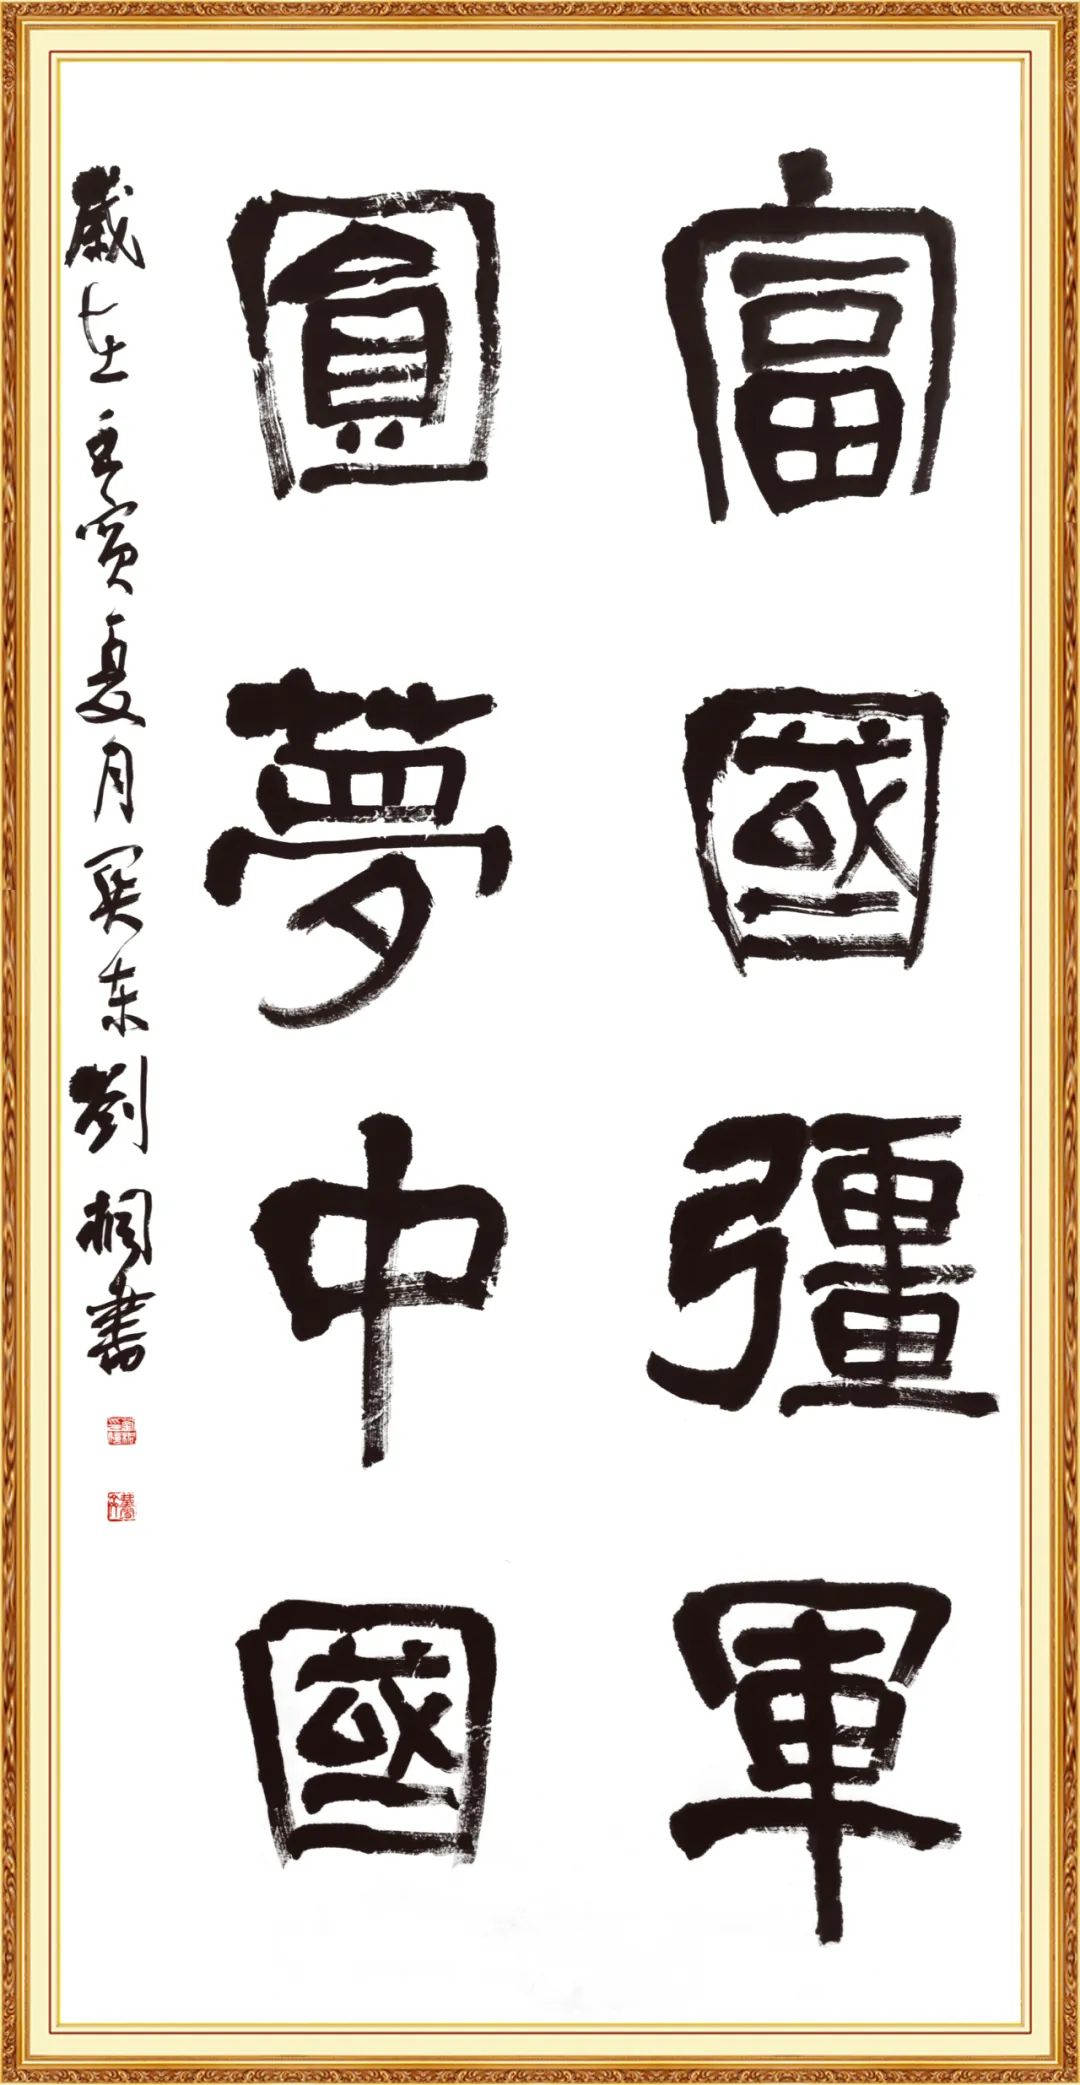 富國彊軍
圓夢中國
歲在壬寅夏月關东劉桐書